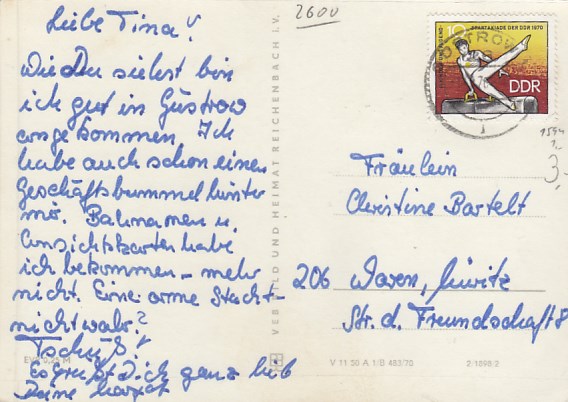 Liebe Tina!
Wie Du siehst bin
ich gut in Güstrow
angekommen. Ich
habe auch schon einen
Geschäftsbummel hinter
mir. Bananen u.
Ansichtskarten habe
ich bekommen – mehr
nicht. Eine arme Stadt –
nicht wahr?
Tschüß!
Es grüßt Dich ganz lieb
Deine
2600
VEB BILD UND HEIMAT REICHENBACH I. V.
SPARTAKIADE DER DDR 1970
10
DDR
1594
1,-
3,-
Fräulein
Christine Bartelt
206 Waren, Müritz
Str. d. Freundschaft 8
V 11 50 A 1/B 483/70
2/1898/2